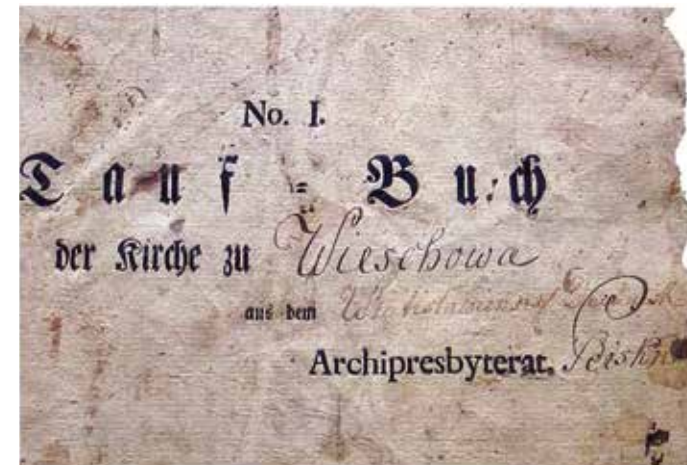 No. I.
Tauf=Buch
der Kirche zu Wieschowa
aus dem
Archipresbyterat.